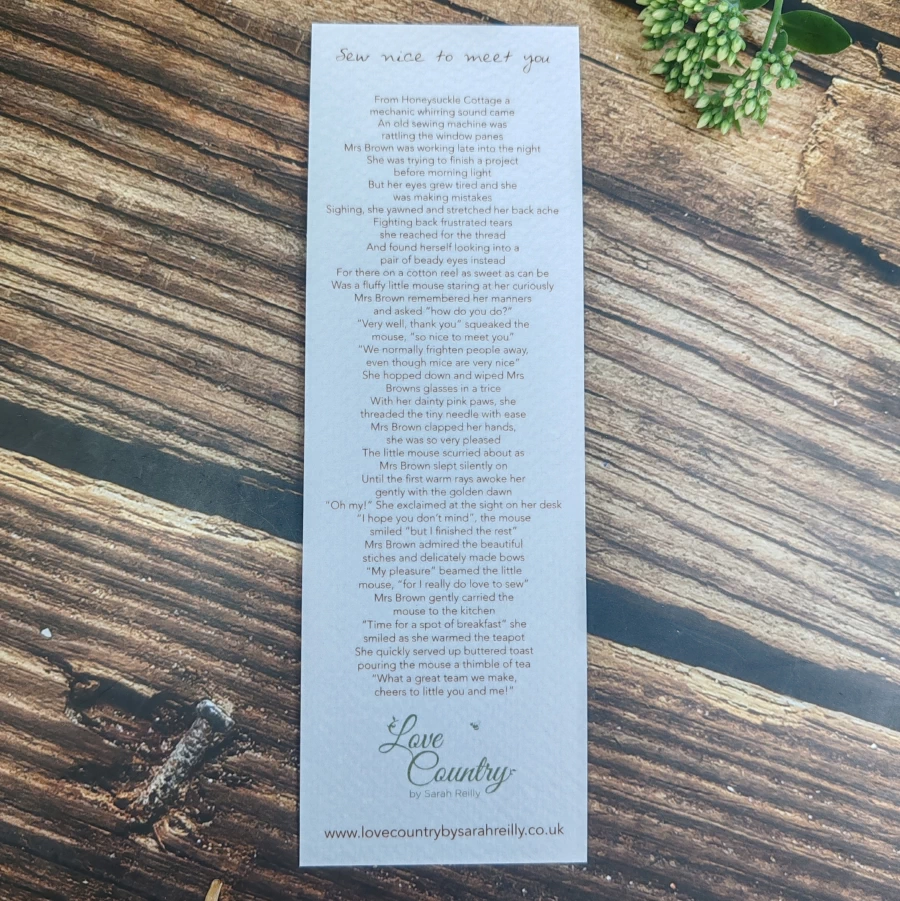 Sew nice to meet you
From Honeysuckle Cottage a
mechanic whirring sound came
An old sewing machine was
rattling the window panes
Mrs Brown was working late into the night
She was trying to finish a project
before morning light
But her eyes grew tired and she
was making mistakes
Sighing, she yawned and stretched her back ache
Fighting back frustrated tears
she reached for the thread
And found herself looking into a
pair of beady eyes instead
For there on a cotton reel as sweet as can be
Was a fluffy little mouse staring at her curiously
Mrs Brown remembered her manners
and asked "how do you do?"
"Very well, thank you" squeaked the
mouse, "so nice to meet you"
"We normally frighten people away,
even though mice are very nice"
She hopped down and wiped Mrs
Browns glasses in a trice
With her dainty pink paws, she
threaded the tiny needle with ease
Mrs Brown clapped her hands,
she was so very pleased
The little mouse scurried about as
Mrs Brown slept silently on
Until the first warm rays awoke her
gently with the golden dawn
"Oh my!" She exclaimed at the sight on her desk
"I hope you don't mind", the mouse
smiled "but I finished the rest"
Mrs Brown admired the beautiful
stiches and delicately made bows
"My pleasure" beamed the little
mouse, "for I really do love to sew"
Mrs Brown gently carried the
mouse to the kitchen
"Time for a spot of breakfast" she
smiled as she warmed the teapot
She quickly served up buttered toast
pouring the mouse a thimble of tea
"What a great team we make,
cheers to little you and me!"
Love
Country
by Sarah Reilly
www.lovecountrybysarahreilly.co.uk